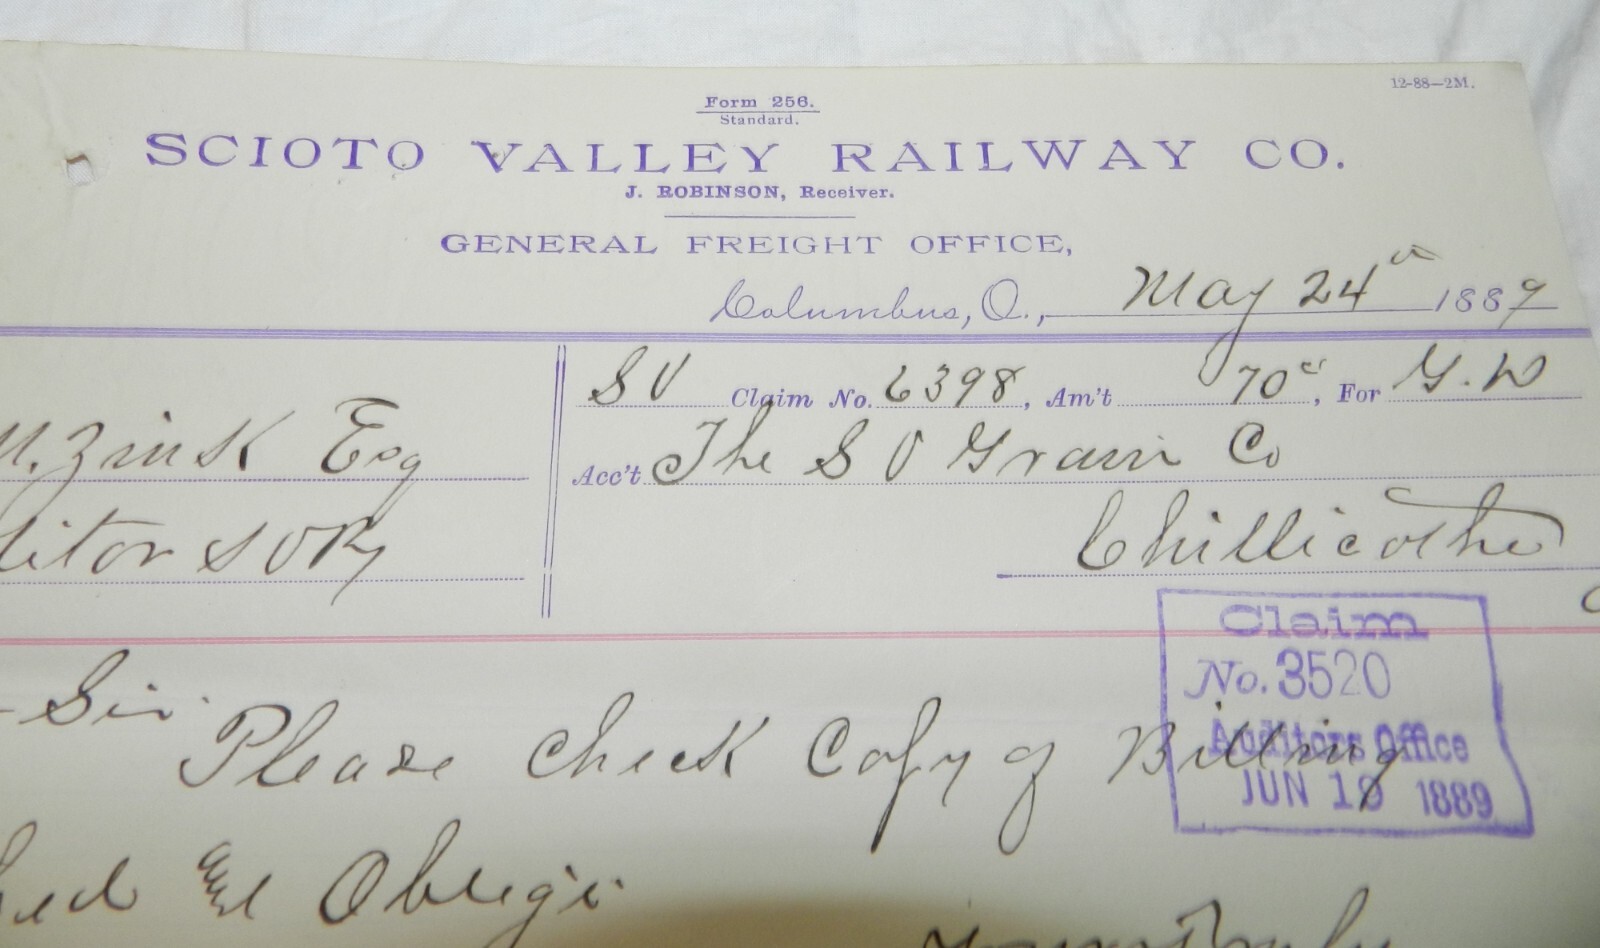 12-88-2M.
Form 256.
Standard.
SCIOTO VALLEY RAILWAY CO.
J. ROBINSON, Receiver.
GENERAL FREIGHT OFFICE,
Columbus, O., May 24th 1889
SV Claim No. 6398, Am't 70c, For G. W
Zink Esq
Acc't The S V Grain Co
ditor S V Ry
Chillicothe
Claim
No. 3520
Auditors Office
JUN 10 1889
Sir.
Please check Copy of Billing
hed & Oblige
Yours Truly